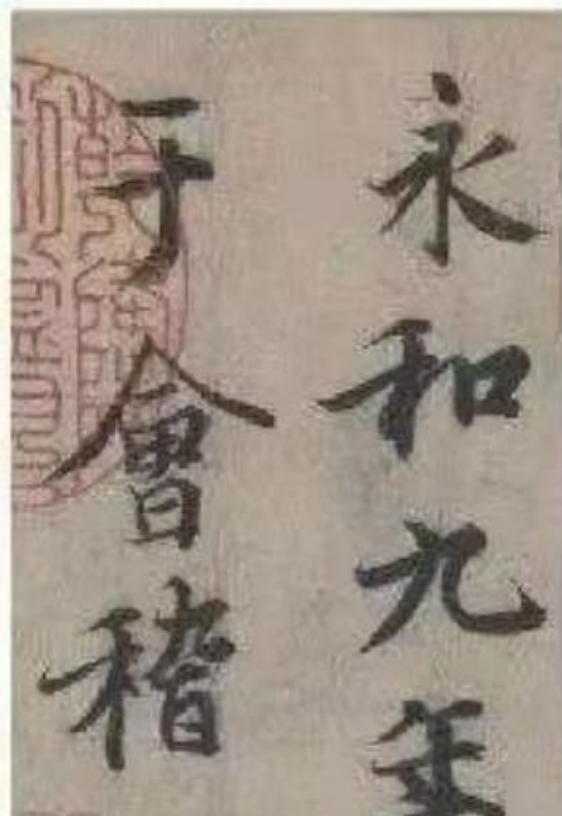 永和九年
于會稽